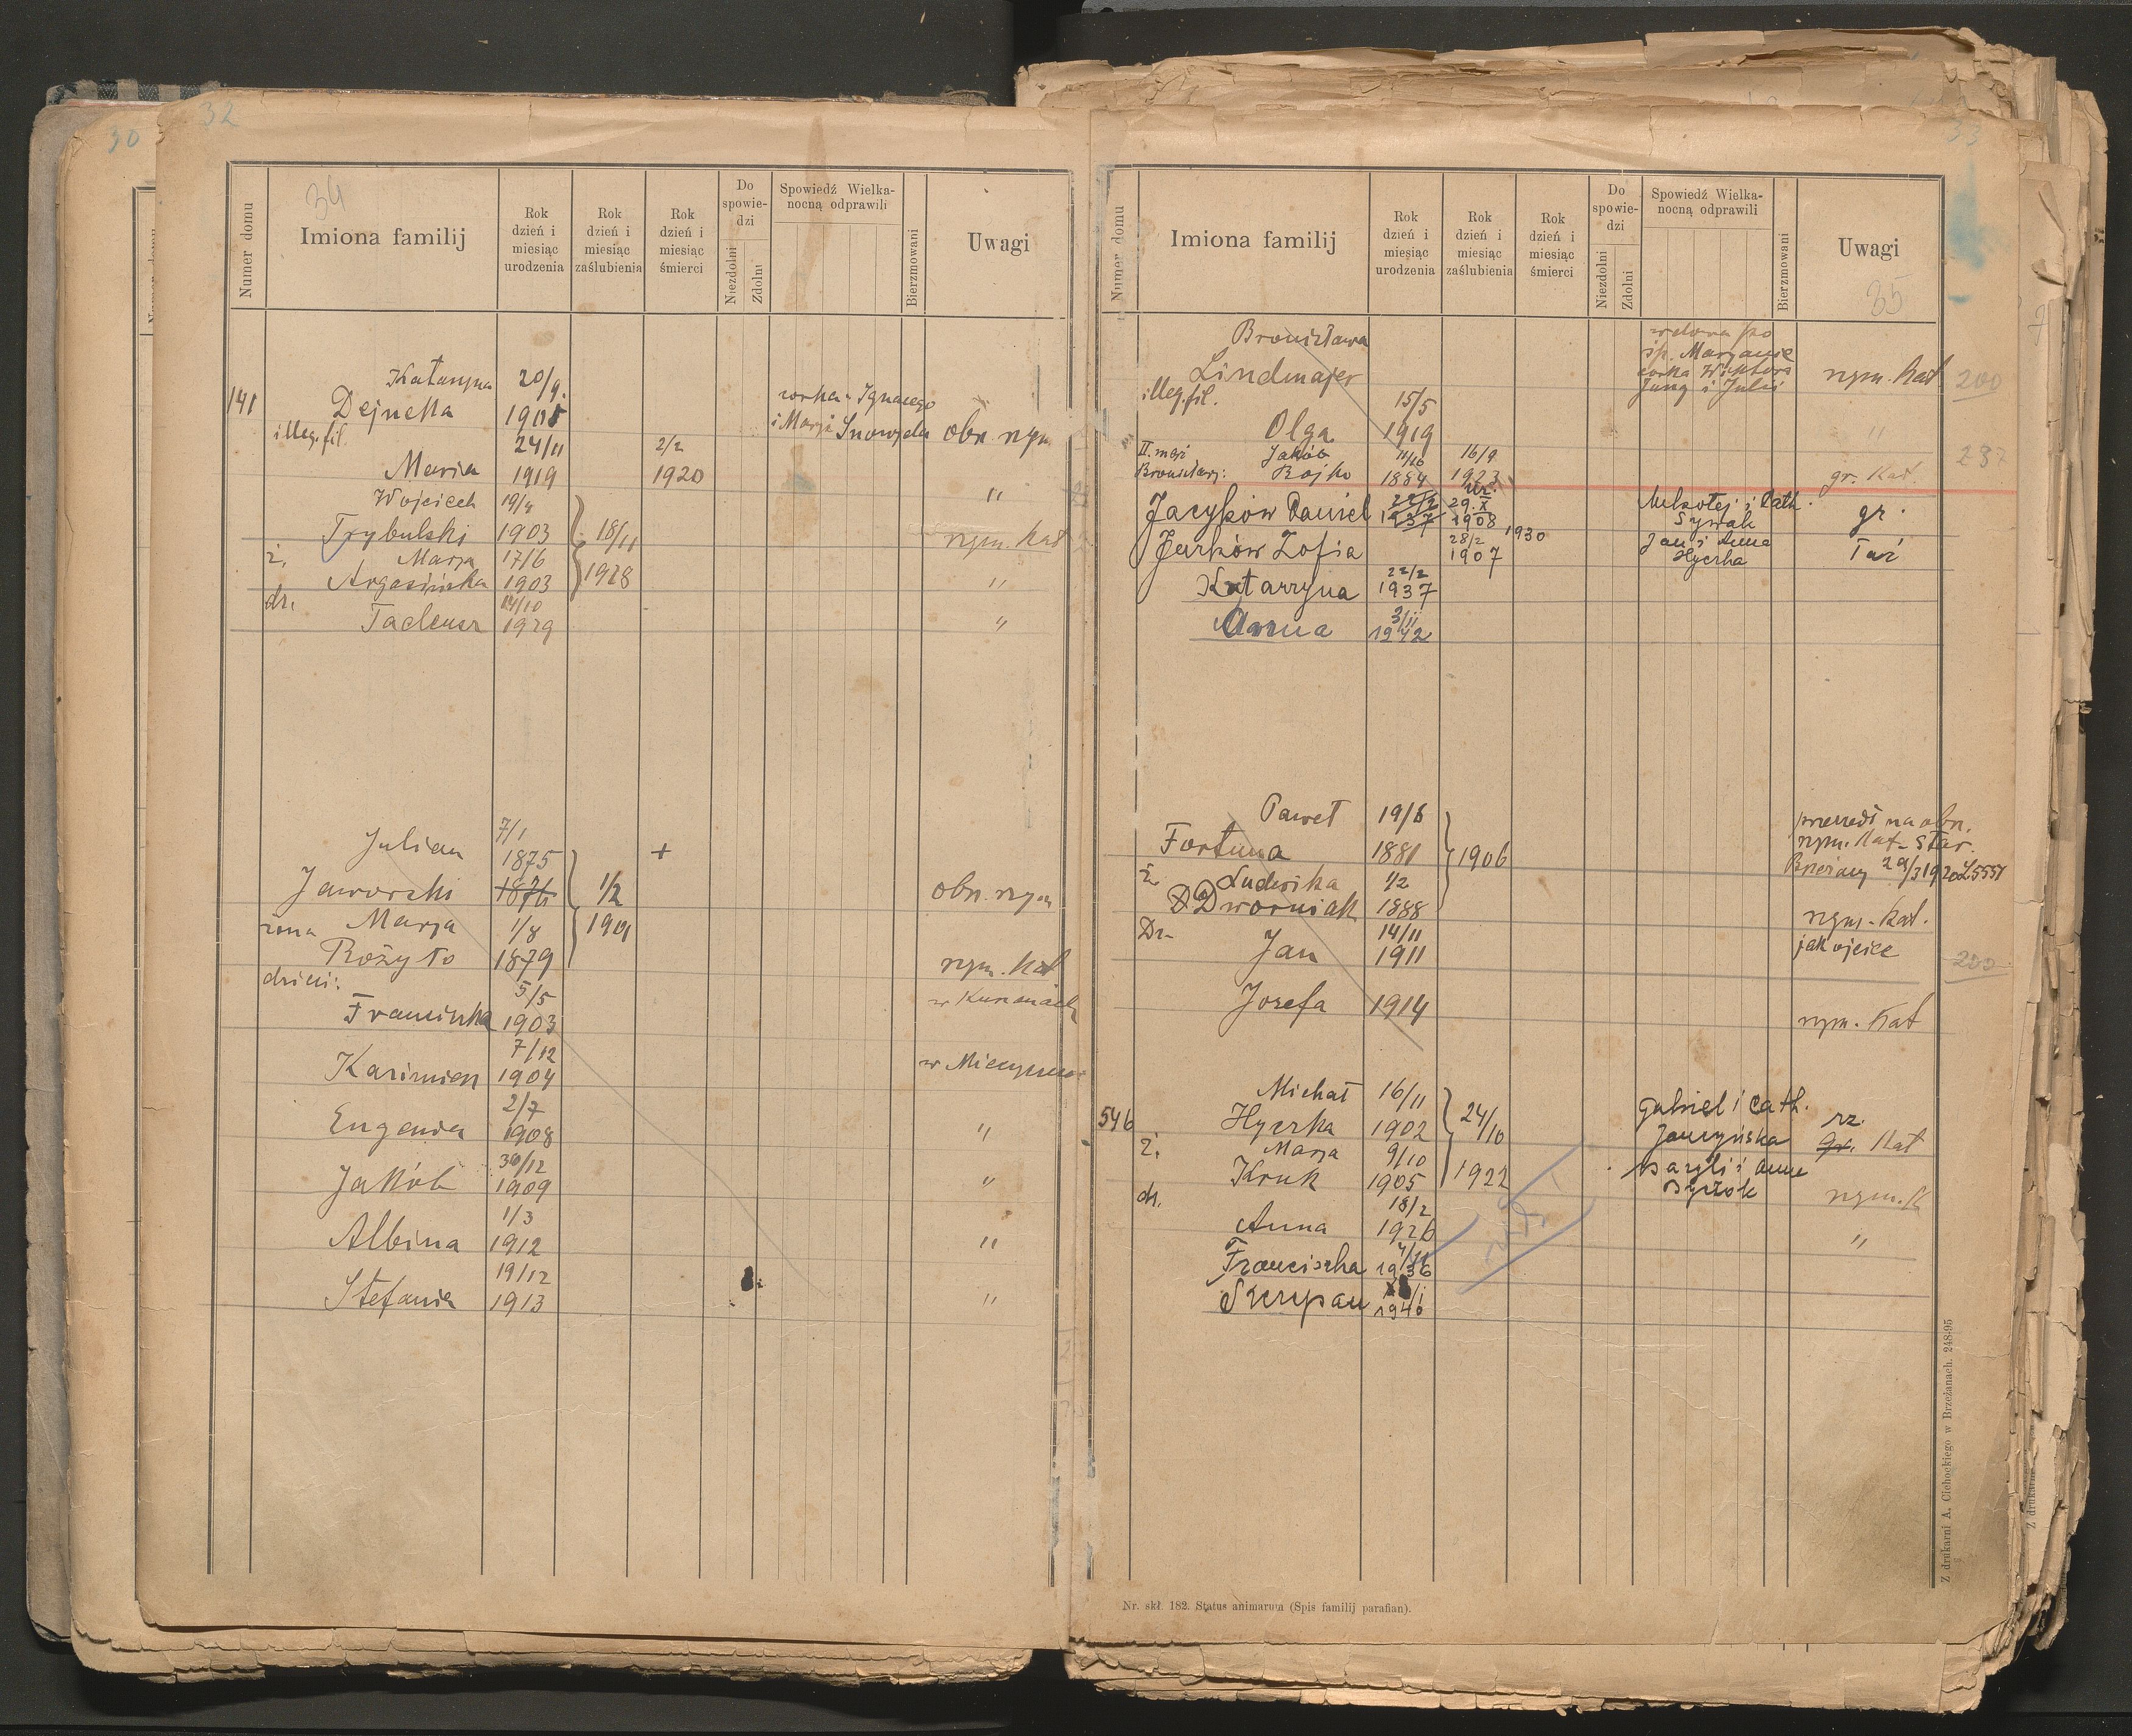 30
32
34
Numer domu
Imiona familij
Rok dzień i miesiąc urodzenia
Rok dzień i miesiąc zaślubienia
Rok dzień i miesiąc śmierci
Do spowiedzi
Niezdolni
Zdolni
Spowiedź Wielkanocną odprawili
Bierzmowani
Uwagi
Katarzyna 20/9.
141 Dejneka 1901 corka Ignacego
i Marji obn. rzym
illeg. fil. 24/11 2/2
Maria 1919 1920 "
Wojciech 19/4
Trybulski 1903 18/11 rzym. Kat
ż. Marja 17/6
Argasińska 1903 1928 "
dz. 14/10
Tadeusz 1929 "
7/1
Julian 1875 +
Jaworski 1876 1/2 obn. rzym
żona Marja 1/8 1901
Rożyto 1879 rzym. Kat
dzieci: 5/5 w Kurzanach
Franciszka 1903
7/12
Kazimierz 1904 w
2/7
Eugenia 1908 "
30/12
Jakób 1909 "
1/3
Albina 1912 "
19/12
Stefania 1913 "
33
35
Numer domu
Imiona familij
Rok dzień i miesiąc urodzenia
Rok dzień i miesiąc zaślubienia
Rok dzień i miesiąc śmierci
Do spowiedzi
Niezdolni
Zdolni
Spowiedź Wielkanocną odprawili
Bierzmowani
Uwagi
Bronisława wdowa po
śp. Marjanie
Lindmajer corka Wiktora rzym. Kat 200
illeg. fil. 15/5 Jung i Julii
Olga 1919 " 237
II. mąż Jakób 11/10 16/9
Bronisławy: Bojko 1884 1923 gr. Kat.
ur.
Jacyków Daniel 22/2 1937 29.X 1908 Mikołej i Cath. gr.
Sywak
Jurków Zofia 28/2 1907 1930 Jan i Anna
Hycrka
Katarzyna 22/2 1937
Anna 3/II 1942
Paweł 19/8 przeszedł na obn.
rzym. Kat. Star.
Fortuna 1881 1906 Brzeżany 29/3 1920 L 5551
ż. Ludwika 1/2
Dworniak 1888 rzym. Kat.
Dz. 14/11 jak ojciec
Jan 1911 200
Jozefa 1914 rzym. Kat
Michał 16/11 Gabriel i Cath.
546 Hycrka 1902 24/10 rz.
gr. Kat
ż. Marja 9/10 Wasyli i Anna
Kruk 1905 1922 rzym. K
dz. 18/2
Anna 1926 "
Franciszka 4/11 1936
Szczepan 1940
Nr. skł. 182. Status animarum (Spis familij parafian).
Z drukarni A. Ciehockiego w Brzeżanach. 248-95
Z drukarni